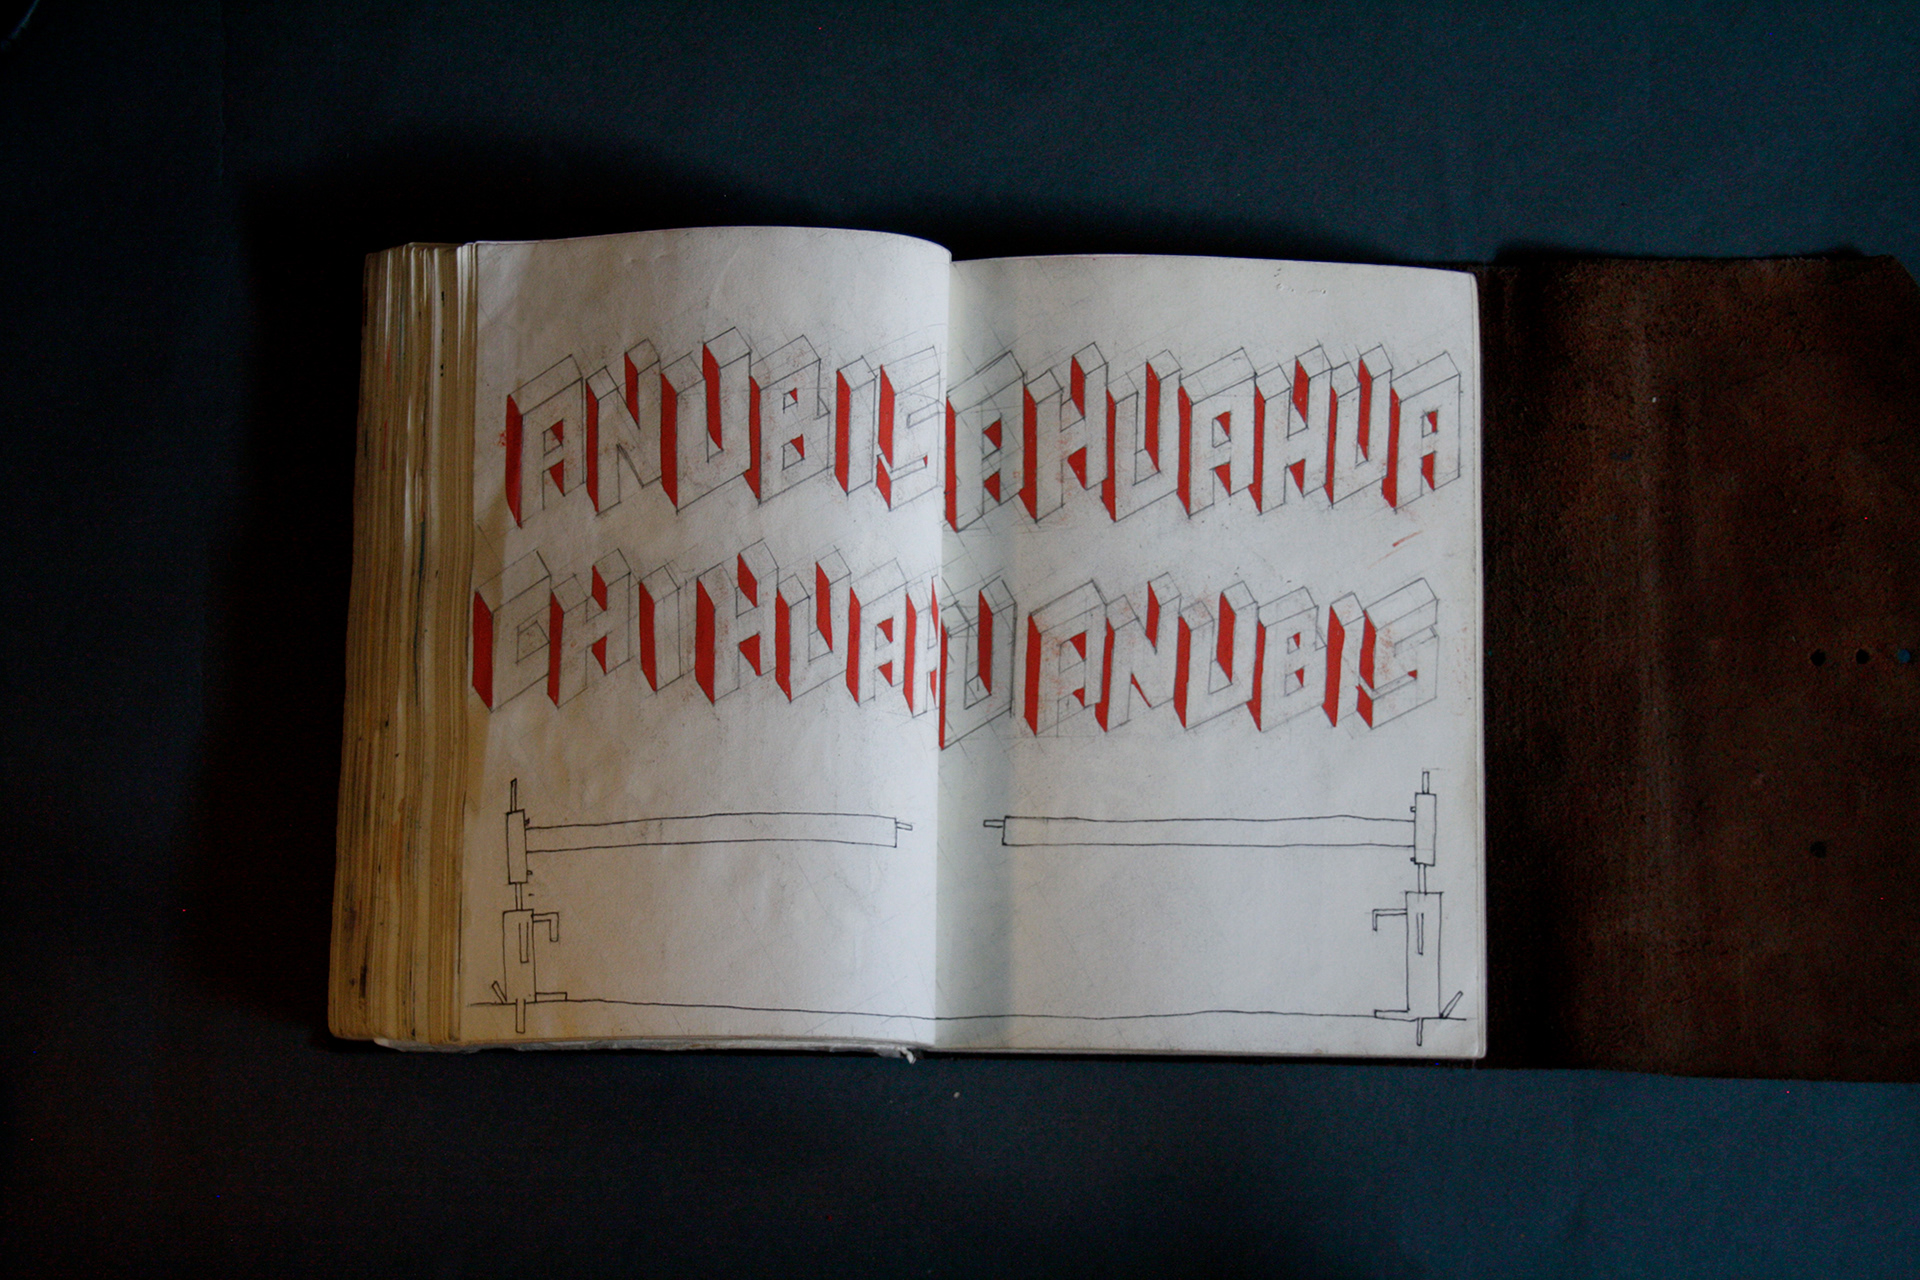 ANUBISAHUAHUA
CHIHUAHUANUBIS